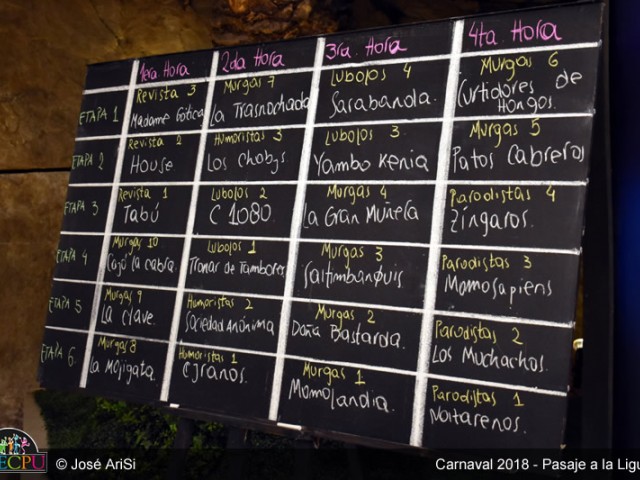 1era Hora
2da Hora
3ra. Hora
4ta. Hora
ETAPA 1
Revista 3
Madame Gótica
Murgas 7
La Trasnochada
Lubolos 4
Sarabanda.
Murgas 6
Curtidores de
Hongos.
ETAPA 2
Revista 2
House
Humoristas 3
Los Chobys
Lubolos 3
Yambo Kenia
Murgas 5
Patos Cabreros
ETAPA 3
Revista 1
Tabú
Lubolos 2
C 1080.
Murgas 4
La Gran Muñeca
Parodistas 4
Zíngaros.
ETAPA 4
Murgas 10
Cayó la cabra.
Lubolos 1
Tronar de Tambores
Murgas 3
Saltimbanquis
Parodistas 3
Momosapiens
ETAPA 5
Murgas 9
La Clave.
Humoristas 2
Sociedad Anónima
Murgas 2
Doña Bastarda.
Parodistas 2
Los Muchachos.
ETAPA 6
Murgas 8
La Mojigata.
Humoristas 1
Cyranos.
Murgas 1
Momolandia.
Parodistas 1
Nazarenos.
ECPU
© José AriSi
Carnaval 2018 - Pasaje a la Ligu